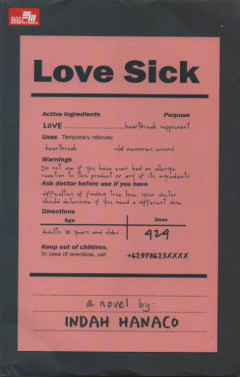 Love Sick
Active Ingredients Purpose
LOVE heartbreak suppressant
Uses Temporary relieves:
heartbreak old memories wound
Warnings
Do not use if you have ever had an allergic
reaction to this product or any of its ingredients.
Ask doctor before use if you have
difficulties of finding true love. Your doctor
should determine if you need a different dose.
Directions
Age Dose
Adults 18 years and older 424
Keep out of children.
In case of overdose, call +62978623XXXX
a novel by:
INDAH HANACO